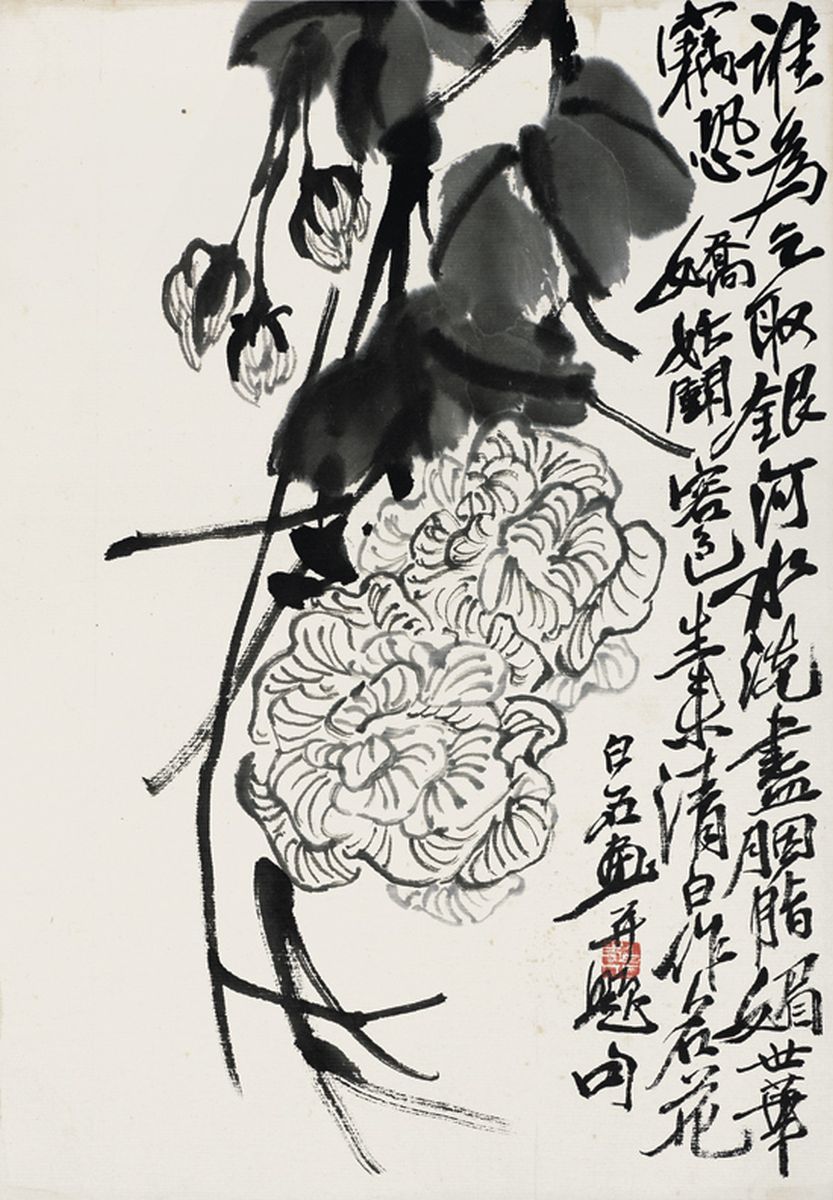 誰為乞取銀河水洗盡胭脂媚世華
竊恐嬌妬鬪容色生來清白作名花
白石畫并題句